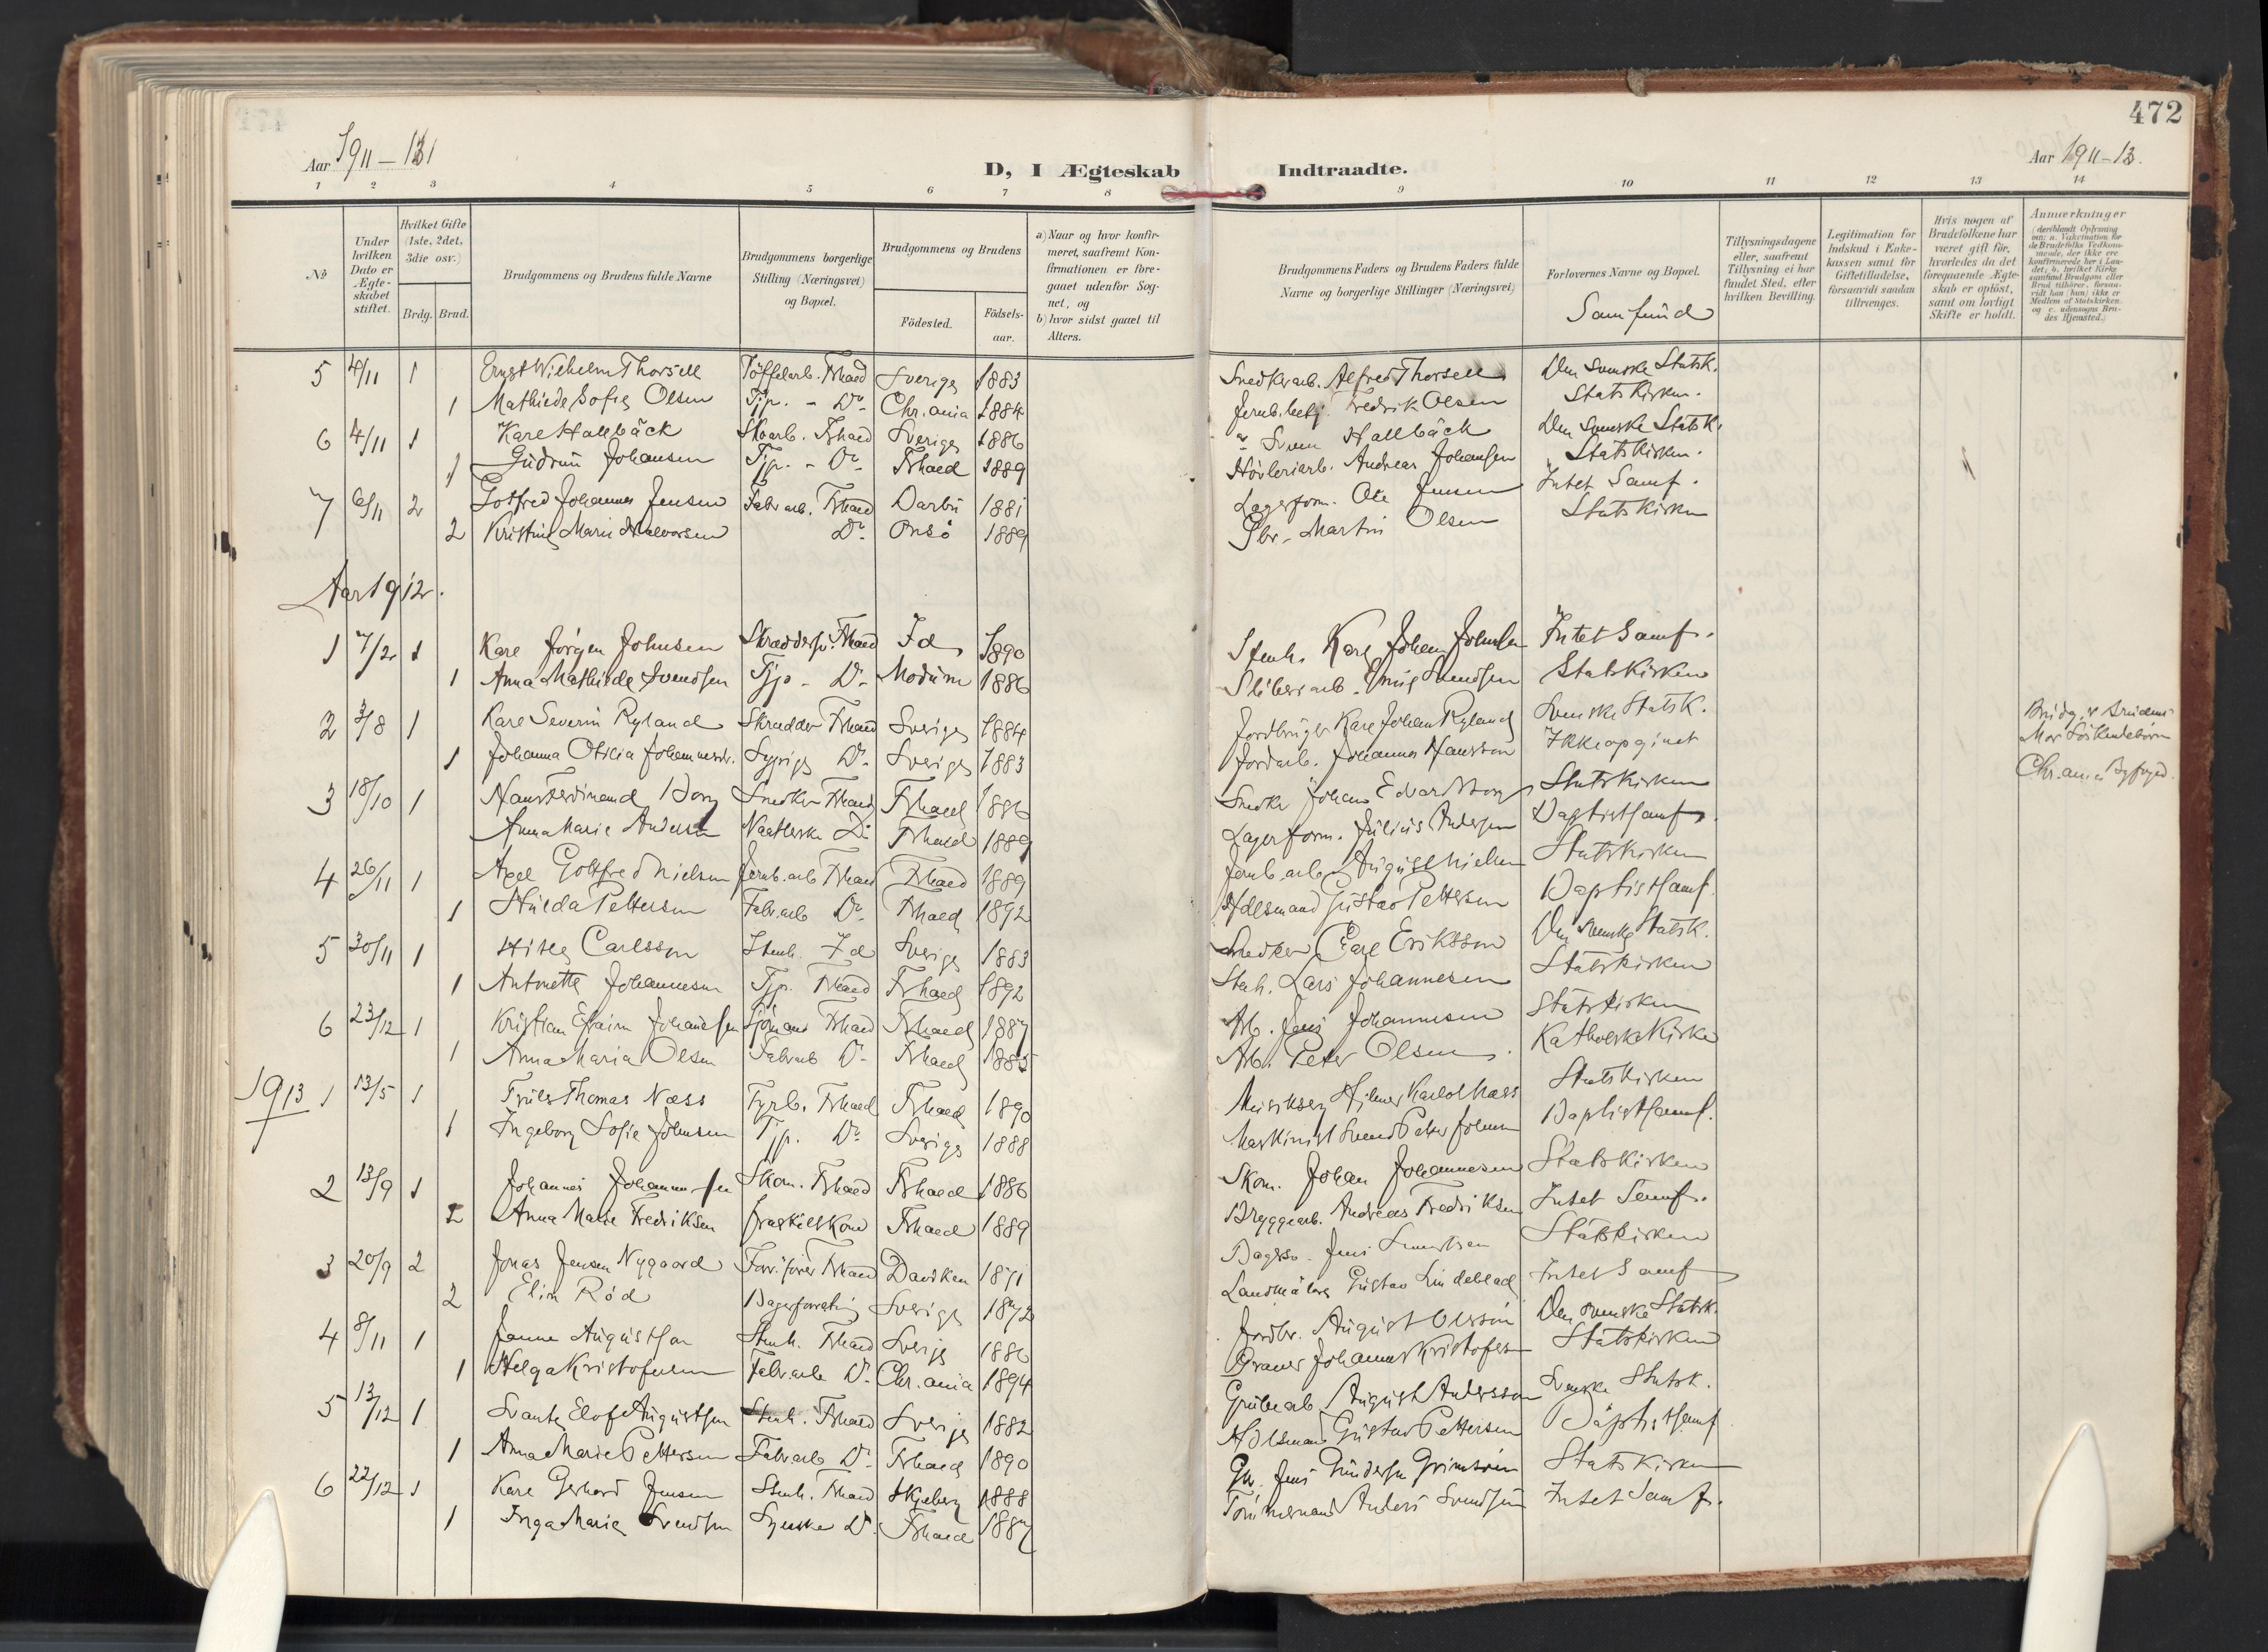 472
Aar 1911–13
D, I Ægteskab Indtraadte.
Aar 1911–13.
1 2 3 4 5 6 7 8 9 10 11 12 13 14
No
Under hvilken Dato er Ægteskabet stiftet.
Hvilket Gifte (1ste, 2det, 3die osv.)
Brdg. Brud.
Brudgommens og Brudens fulde Navne
Brudgommens borgerlige Stilling (Næringsvei) og Bopæl.
Brudgommens og Brudens
Födested. Födselsaar.
a) Naar og hvor konfirmeret, saafremt Konfirmationen er foregaaet udenfor Sognet, og
b) hvor sidst gaaet til Alters.
Brudgommens Faders og Brudens Faders fulde Navne og borgerlige Stillinger (Næringsvei)
Forlovernes Navne og Bopæl.
Samfund
Tillysningsdagene eller, saafremt Tillysning ei har fundet Sted, efter hvilken Bevilling.
Legitimation for Indskud i Enkekassen samt for Giftetilladelse, forsaavidt saadan tiltrænges.
Hvis nogen af Brudefolkene har været gift för, hvorledes da det foregaaende Ægteskab er oplöst, samt om lovligt Skifte er holdt.
Anmærkninger (deriblandt Oplysning om: a. Vakcination for de Brudefolks Vedkommende, der ikke ere konfirmerede her i Landet; b. hvilket Kirkesamfund Brudgom eller Brud tilhörer, forsaavidt han (hun) ikke er Medlem af Statskirken, og c. udensogns Brudes Hjemsted.)
5 4/11 1 Ernst Wilhelm Thorsell Töffelarb. Frhald Sverige 1883 Snedkerarb. Alfred Thorsell Den Svenske Statsk.
1 Mathilde Sofie Olsen Tjp. - Do Chr.ania 1884 Jernb.betj. Fredrik Olsen Statskirken.
6 4/11 1 Karl Hallbäck Skoarb. Frhald Sverige 1886 Sven Hallbäck Den Svenske Statsk.
1 Gudrun Johansen Tjp. - Do Frhald 1889 Høvleriarb. Andreas Johansen Statskirken.
7 6/11 2 Gotfred Johannes Jensen Fabr.arb. Frhald Darbu 1881 Lagerform. Ole Jensen Intet Samf.
2 Kristine Marie Halvorsen Do Onsö 1889 Gbr. Martin Olsen Statskirken
Aar 1912.
1 7/2 1 Karl Jørgen Johnsen Skræddersv. Frhald Id 1890 Stenh. Karl Johan Johnsen Intet Samf.
1 Anna Mathilde Svendsen Tjp - Do Modum 1886 Sliberiarb. Emil Svendsen Statskirken
2 3/8 1 Karl Severin Ryland Skrædder Frhald Sverige 1884 Jordbruger Karl Johan Ryland Svenske Statsk. Brudg. & Brudens Mor Söskendebörn
1 Johanna Otilia Johannesdr. Sypige Do Sverige 1883 Jordarb. Johannes Hansson Ikke opgivet Chr.ania Byfoged.
3 18/10 1 Hans Ferdinand Borg Snedker Frhald Frhald 1886 Snedker Johan Edvard Borg Statskirken
Anna Marie Andersen Naatlerske Do Frhald 1889 Lagerform. Julius Andersen Baptistsamf.
4 26/11 1 Axel Gottfred Nielsen Jernb.arb Frhald Frhald 1889 Jernb.arb August Nielsen Statskirken
1 Hulda Pettersen Fabr.arb Do Frhald 1892 Holsmand Gustav Pettersen Baptistsamf.
5 30/11 1 Carlsson Stenh. Id Sverige 1883 Snedker Carl Eriksson Den svenske Statsk.
1 Antonette Johannesen Tjp. Frhald Frhald 1892 Stenh. Lars Johannesen Statskirken
6 23/12 1 Kristian Efraim Johannesen Sjömand Frhald Frhald 1887 Arb. Jens Johannesen Statskirken
1 Anna Maria Olsen Fabr.arb Do Frhald 1885 Arb. Peter Olsen Katholske Kirke
1913 1 13/5 1 Truls Thomas Næss Fyrb. Frhald Frhald 1890 Musikserg Hjilmer Karlol Næss Statskirken
1 Ingeborg Sofie Johnsen Tjp. Do Sverige 1888 Maskinist Svend Petter Johnsen Baptistsamf.
2 13/9 1 Johannes Johannesen Skom. Frhald Frhald 1886 Skom. Johan Johannesen Statskirken
2 Anna Marie Fredriksen fraskilt Kone Frhald 1889 Bryggearb. Andreas Fredriksen Intet Samf.
3 20/9 2 Jonas Jensen Nygaard Forr.förer Frhald Daviken 1871 Jens Statskirken
2 Elin Röd Bagerforretn. Sverige 1872 Landmåler Gustav Lindeblad Intet Samf
4 8/11 1 Janne Augustsson Stenh. Frhald Sverige 1886 Jordbr. August Olsson Den svenske Statsk.
1 Helga Kristofersen Fabr.arb Do Chr.ania 1894 Graver Johannes Kristofersen Statskirken
5 13/12 1 Svante Elof Augustsen Stenh. Frhald Sverige 1882 Grubearb August Andersson Svenske Statsk.
1 Anna Marie Pettersen Fabr.arb Do Frhald 1890 Holsmand Gustav Pettersen Baptistsamf
6 22/12 1 Karl Gerhard Jensen Stenh. Frhald Skjeberg 1888 Jens Gundersen Statskirken
1 Inga Marie Svendsen Syerske Do Frhald 1887 Tömmermand Anders Svendsen Intet Samf.